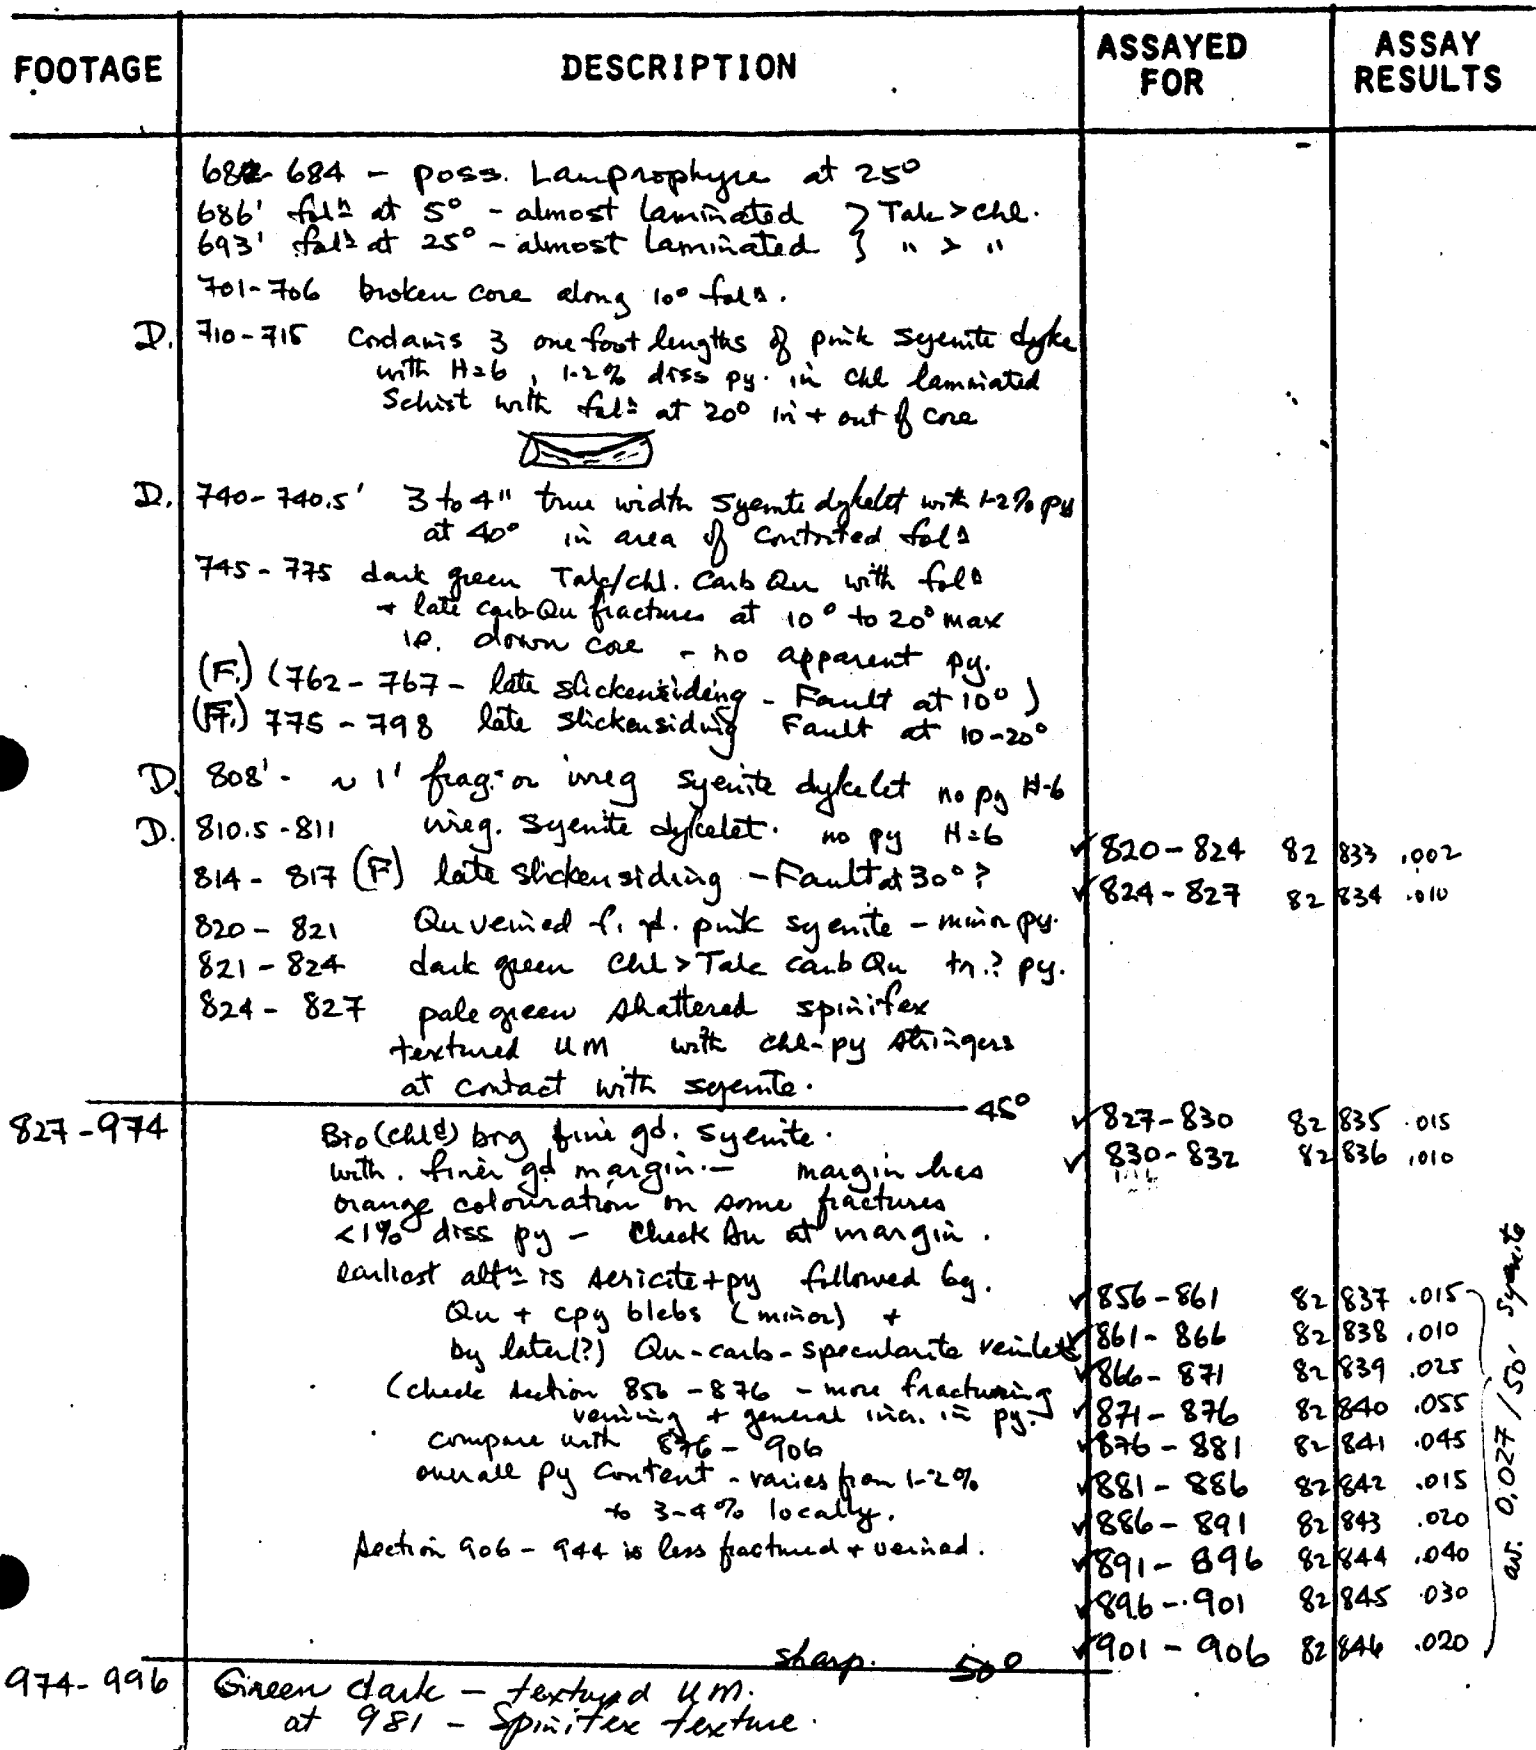 FOOTAGE DESCRIPTION ASSAYED FOR ASSAY RESULTS
682-684 - poss. Lamprophyre at 25°
686' folⁿ at 5° - almost laminated } Talc > chl.
693' folⁿ at 25° - almost laminated } " > "
701-706 broken core along 10° folⁿ.
D. 710-715 Contains 3 one foot lengths of pink syenite dyke
with H=6, 1-2% diss py. in chl laminated
Schist with folⁿ at 20° in + out of core
D. 740-740.5' 3 to 4" true width syenite dykelet with 1-2% py
at 40° in area of contorted folⁿ
745-775 dark green Talc/chl. carb Qu with folⁿ
+ late carb-Qu fractures at 10° to 20° max
i.e. down core - no apparent py.
(F.) (762-767 - late slickensideing - Fault at 10°)
(F.) 775-798 late slickensiding Fault at 10-20°
D. 808' - ~ 1' frag. or irreg syenite dykelet no py H-6
D. 810.5-811 irreg. syenite dykelet. no py H=6
✓ 820-824 82 833 .002
814-817 (F) late slickensiding - Fault at 30°?
✓ 824-827 82 834 .010
820-821 Qu veined f. gd. pink syenite - minor py.
821-824 dark green Chl > Talc carb Qu tr.? py.
824-827 pale green shattered spinifex
textured UM with chl-py stringers
at contact with syenite.
45°
827-974 Bio (chlᵈ) brg fine gd. syenite. ✓ 827-830 82 835 .015
with. finer gd margin. - margin has ✓ 830-832 82 836 .010
orange colouration on some fractures
<1% diss py - Check Au at margin.
earliest altⁿ is sericite + py followed by.
Qu + cpy blebs (minor) + ✓ 856-861 82 837 .015
by later(?) Qu-carb-specularite veinlets ✓ 861-866 82 838 .010
(check section 856-876 - more fracturing ✓ 866-871 82 839 .025
veining + general incr. in py. ✓ 871-876 82 840 .055
compare with 876-906 ✓ 876-881 82 841 .045
overall py content - varies from 1-2% ✓ 881-886 82 842 .015
to 3-4% locally. ✓ 886-891 82 843 .020
Section 906-944 is less fractured + veined. ✓ 891-896 82 844 .040
✓ 896-901 82 845 .030
✓ 901-906 82 846 .020
av. 0.027/50' syenite
sharp. 50°
974-996 Green dark - textured UM.
at 981 - Spinifex texture.